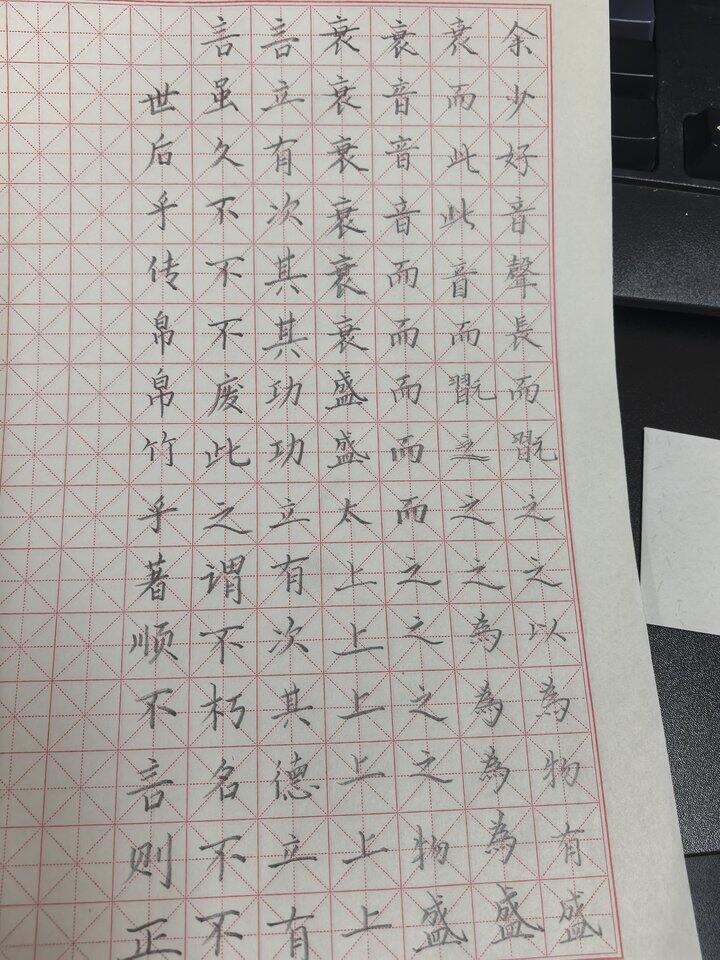 余少好音聲長而翫之之以為物有盛
衰而此此音而翫之之之為為為為盛
衰音音音而而而而而之之之之物盛
衰衰衰衰衰衰盛盛太上上上上上上
言立有次其其功功立有次其德立有
言虽久不不不废此之谓不朽名不不
世后乎传帛帛竹乎著顺不言则正